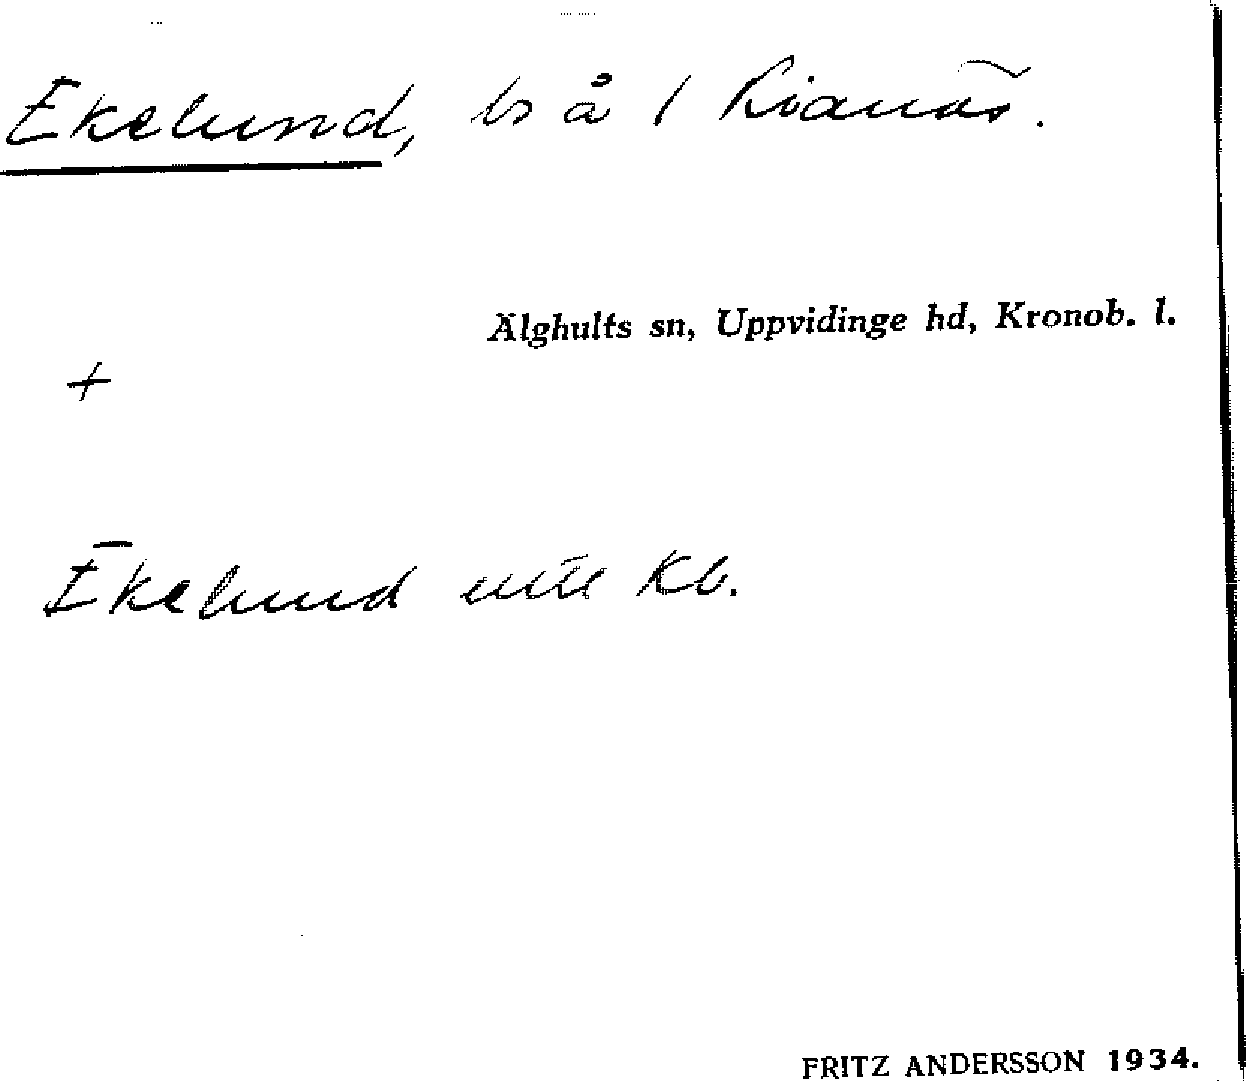 Ekelund, bs å 1 Kvanås.
Älghults sn, Uppvidinge hd, Kronob. l.
+
Ekelund enl Kb.
FRITZ ANDERSSON 1934.